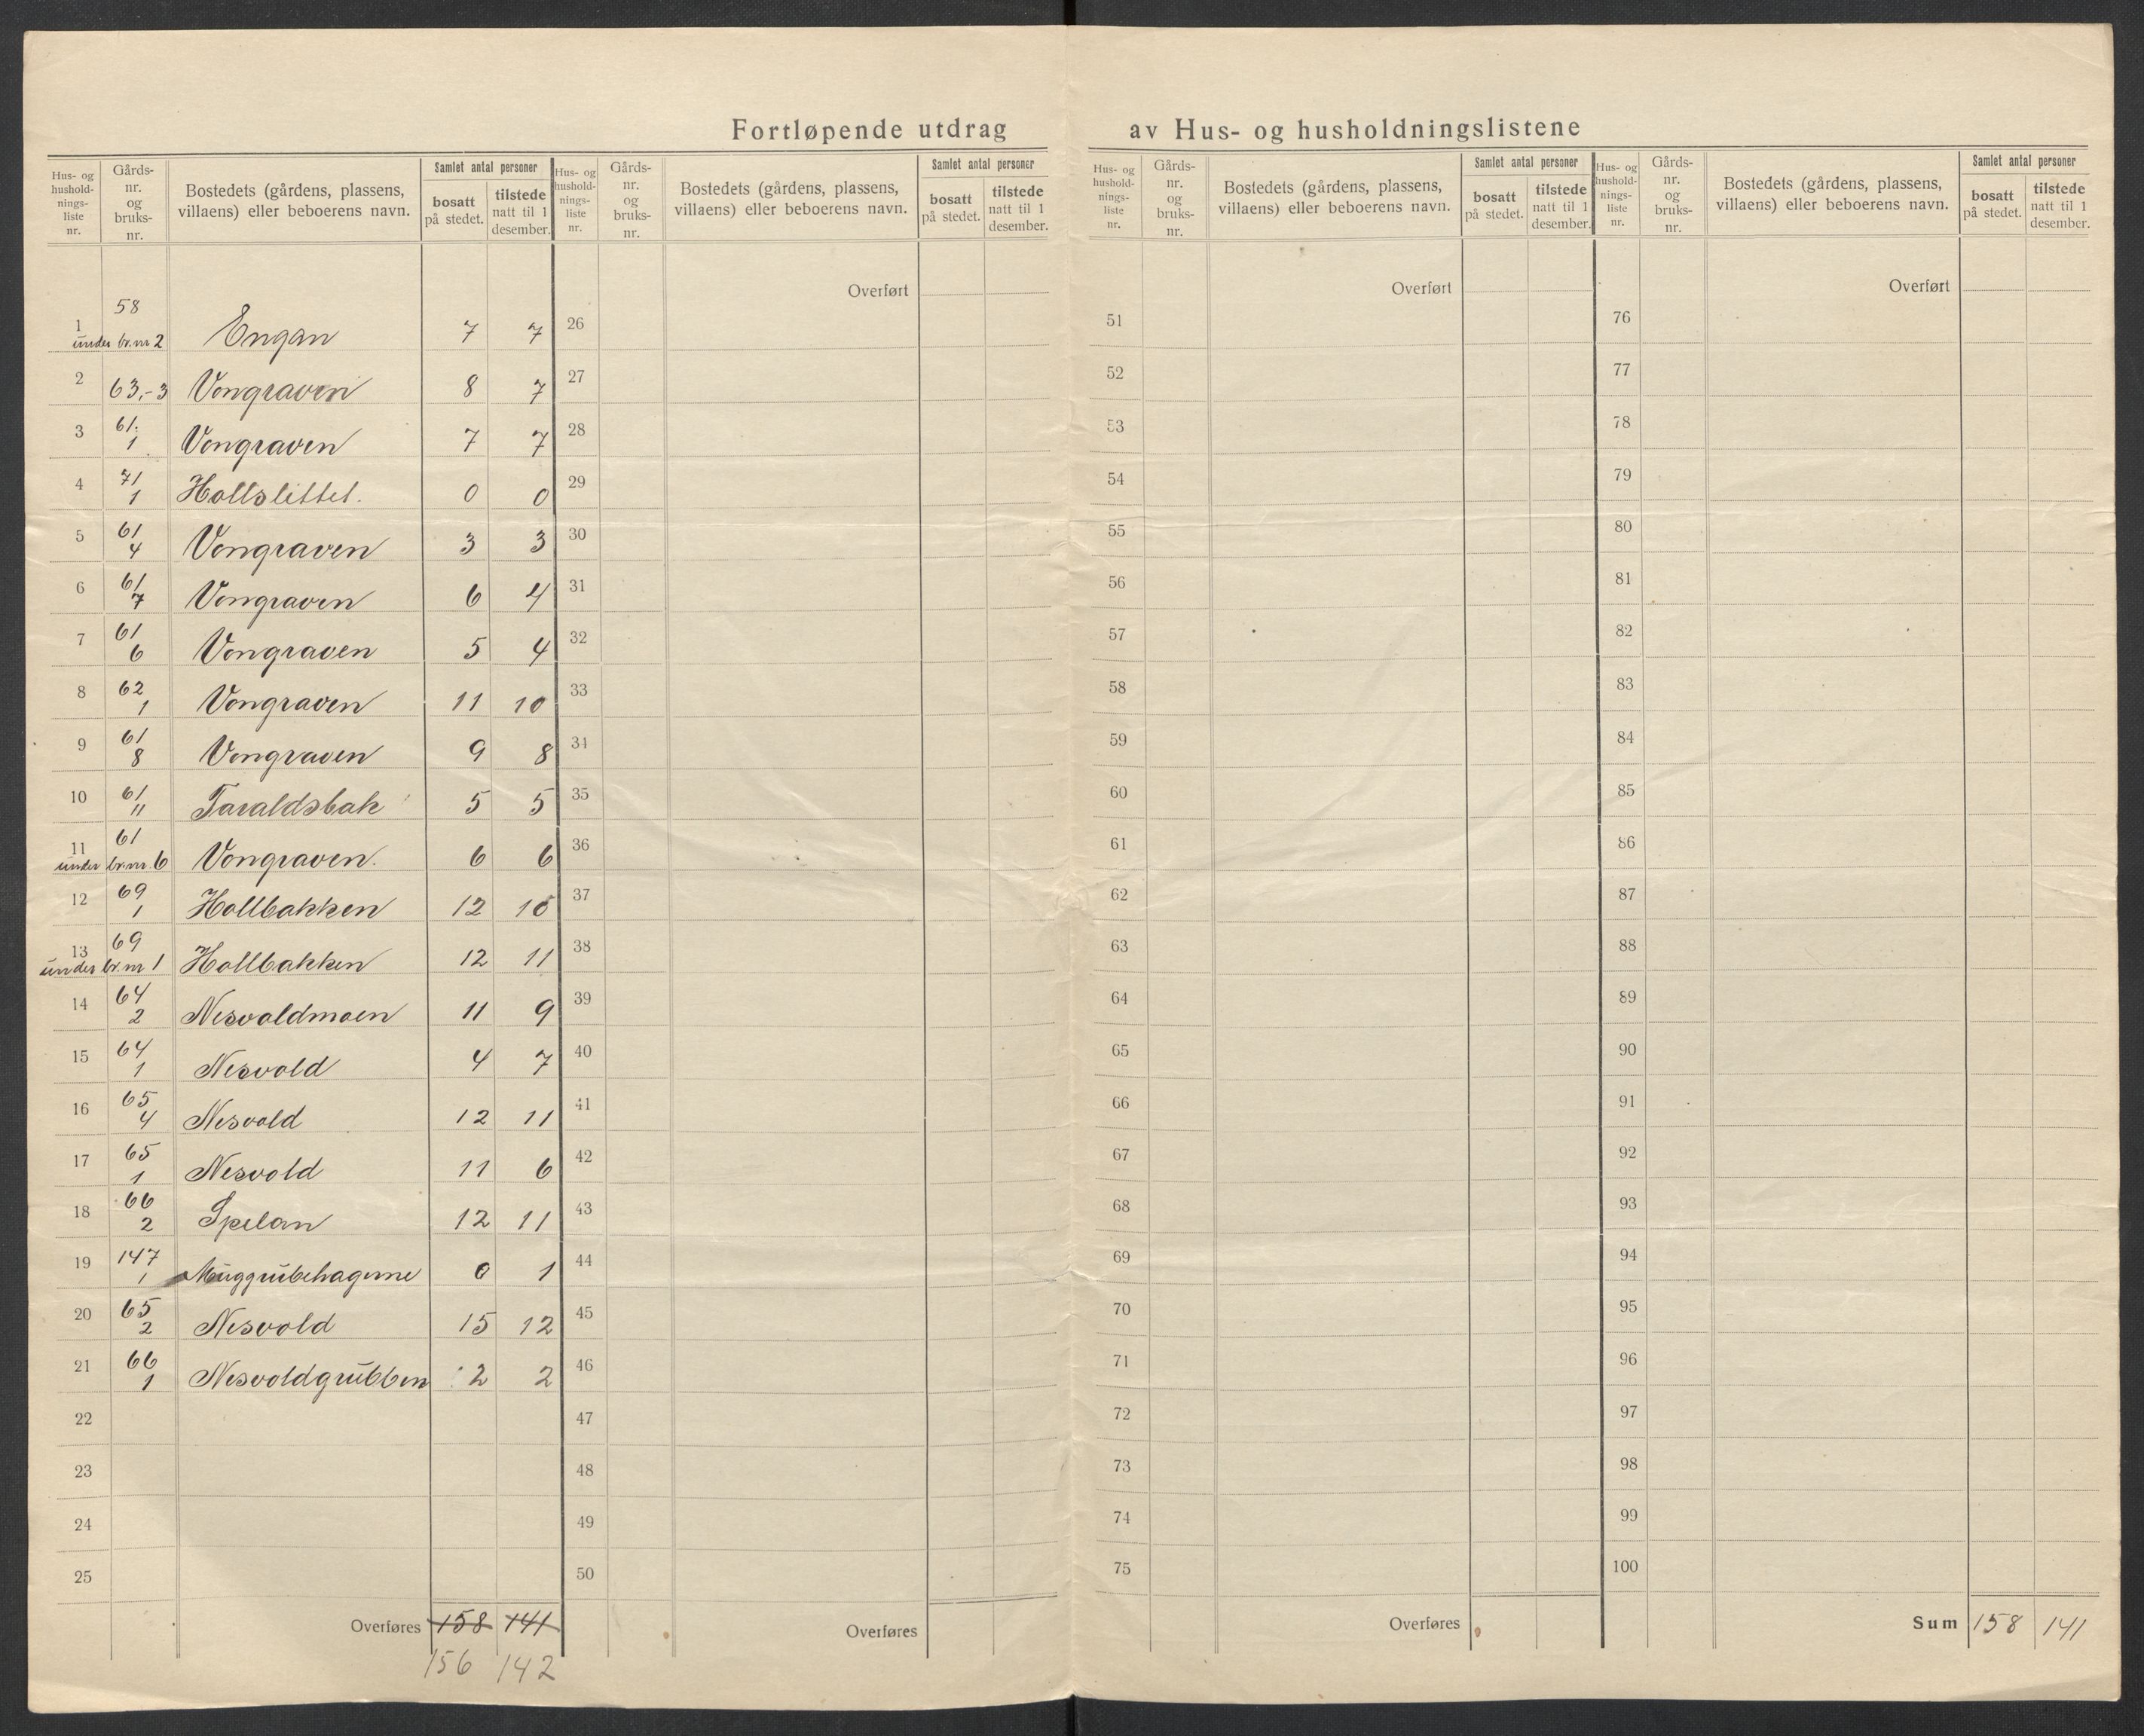 Fortløpende utdrag av Hus- og husholdningslistene
Hus- og hushold- nings- liste nr. | Gårds- nr. og bruks- nr. | Bostedets (gårdens, plassens, villaens) eller beboerens navn. | Samlet antal personer | bosatt på stedet. | tilstede natt til 1 desember.
1 | 58 under br.nr 2 | Engan | 7 | 7
2 | 63,-3 | Vongraven | 8 | 7
3 | 61. 1 | Vongraven | 7 | 7
4 | 71 1 | Hollslittet. | 0 | 0
5 | 61 4 | Vongraven | 3 | 3
6 | 61 7 | Vongraven | 6 | 4
7 | 61 6 | Vongraven | 5 | 4
8 | 62 1 | Vongraven | 11 | 10
9 | 61 8 | Vongraven | 9 | 8
10 | 61 11 | Taraldsbak | 5 | 5
11 | 61 under br.nr. 6 | Vongraven. | 6 | 6
12 | 69 1 | Hollbakken | 12 | 10
13 | 69 under br.nr 1 | Hollbakken | 12 | 11
14 | 64 2 | Nesvoldmoen | 11 | 9
15 | 64 1 | Nesvold | 4 | 7
16 | 65 4 | Nesvold | 12 | 11
17 | 65 1 | Nesvold | 11 | 6
18 | 66 2 | Spelan | 12 | 11
19 | 147 1 | Muggrubehagerne | 0 | 1
20 | 65 2 | Nesvold | 15 | 12
21 | 66 1 | Nesvoldgrubben | 2 | 2
22
23
24
25
Overføres 158 141
156 142
Hus- og hushold- nings- liste nr. | Gårds- nr. og bruks- nr. | Bostedets (gårdens, plassens, villaens) eller beboerens navn. | Samlet antal personer | bosatt på stedet. | tilstede natt til 1 desember.
Overført
26
27
28
29
30
31
32
33
34
35
36
37
38
39
40
41
42
43
44
45
46
47
48
49
50
Overføres
Hus- og hushold- nings- liste nr. | Gårds- nr. og bruks- nr. | Bostedets (gårdens, plassens, villaens) eller beboerens navn. | Samlet antal personer | bosatt på stedet. | tilstede natt til 1 desember.
Overført
51
52
53
54
55
56
57
58
59
60
61
62
63
64
65
66
67
68
69
70
71
72
73
74
75
Overføres
Hus- og hushold- nings- liste nr. | Gårds- nr. og bruks- nr. | Bostedets (gårdens, plassens, villaens) eller beboerens navn. | Samlet antal personer | bosatt på stedet. | tilstede natt til 1 desember.
Overført
76
77
78
79
80
81
82
83
84
85
86
87
88
89
90
91
92
93
94
95
96
97
98
99
100
Sum 158 141